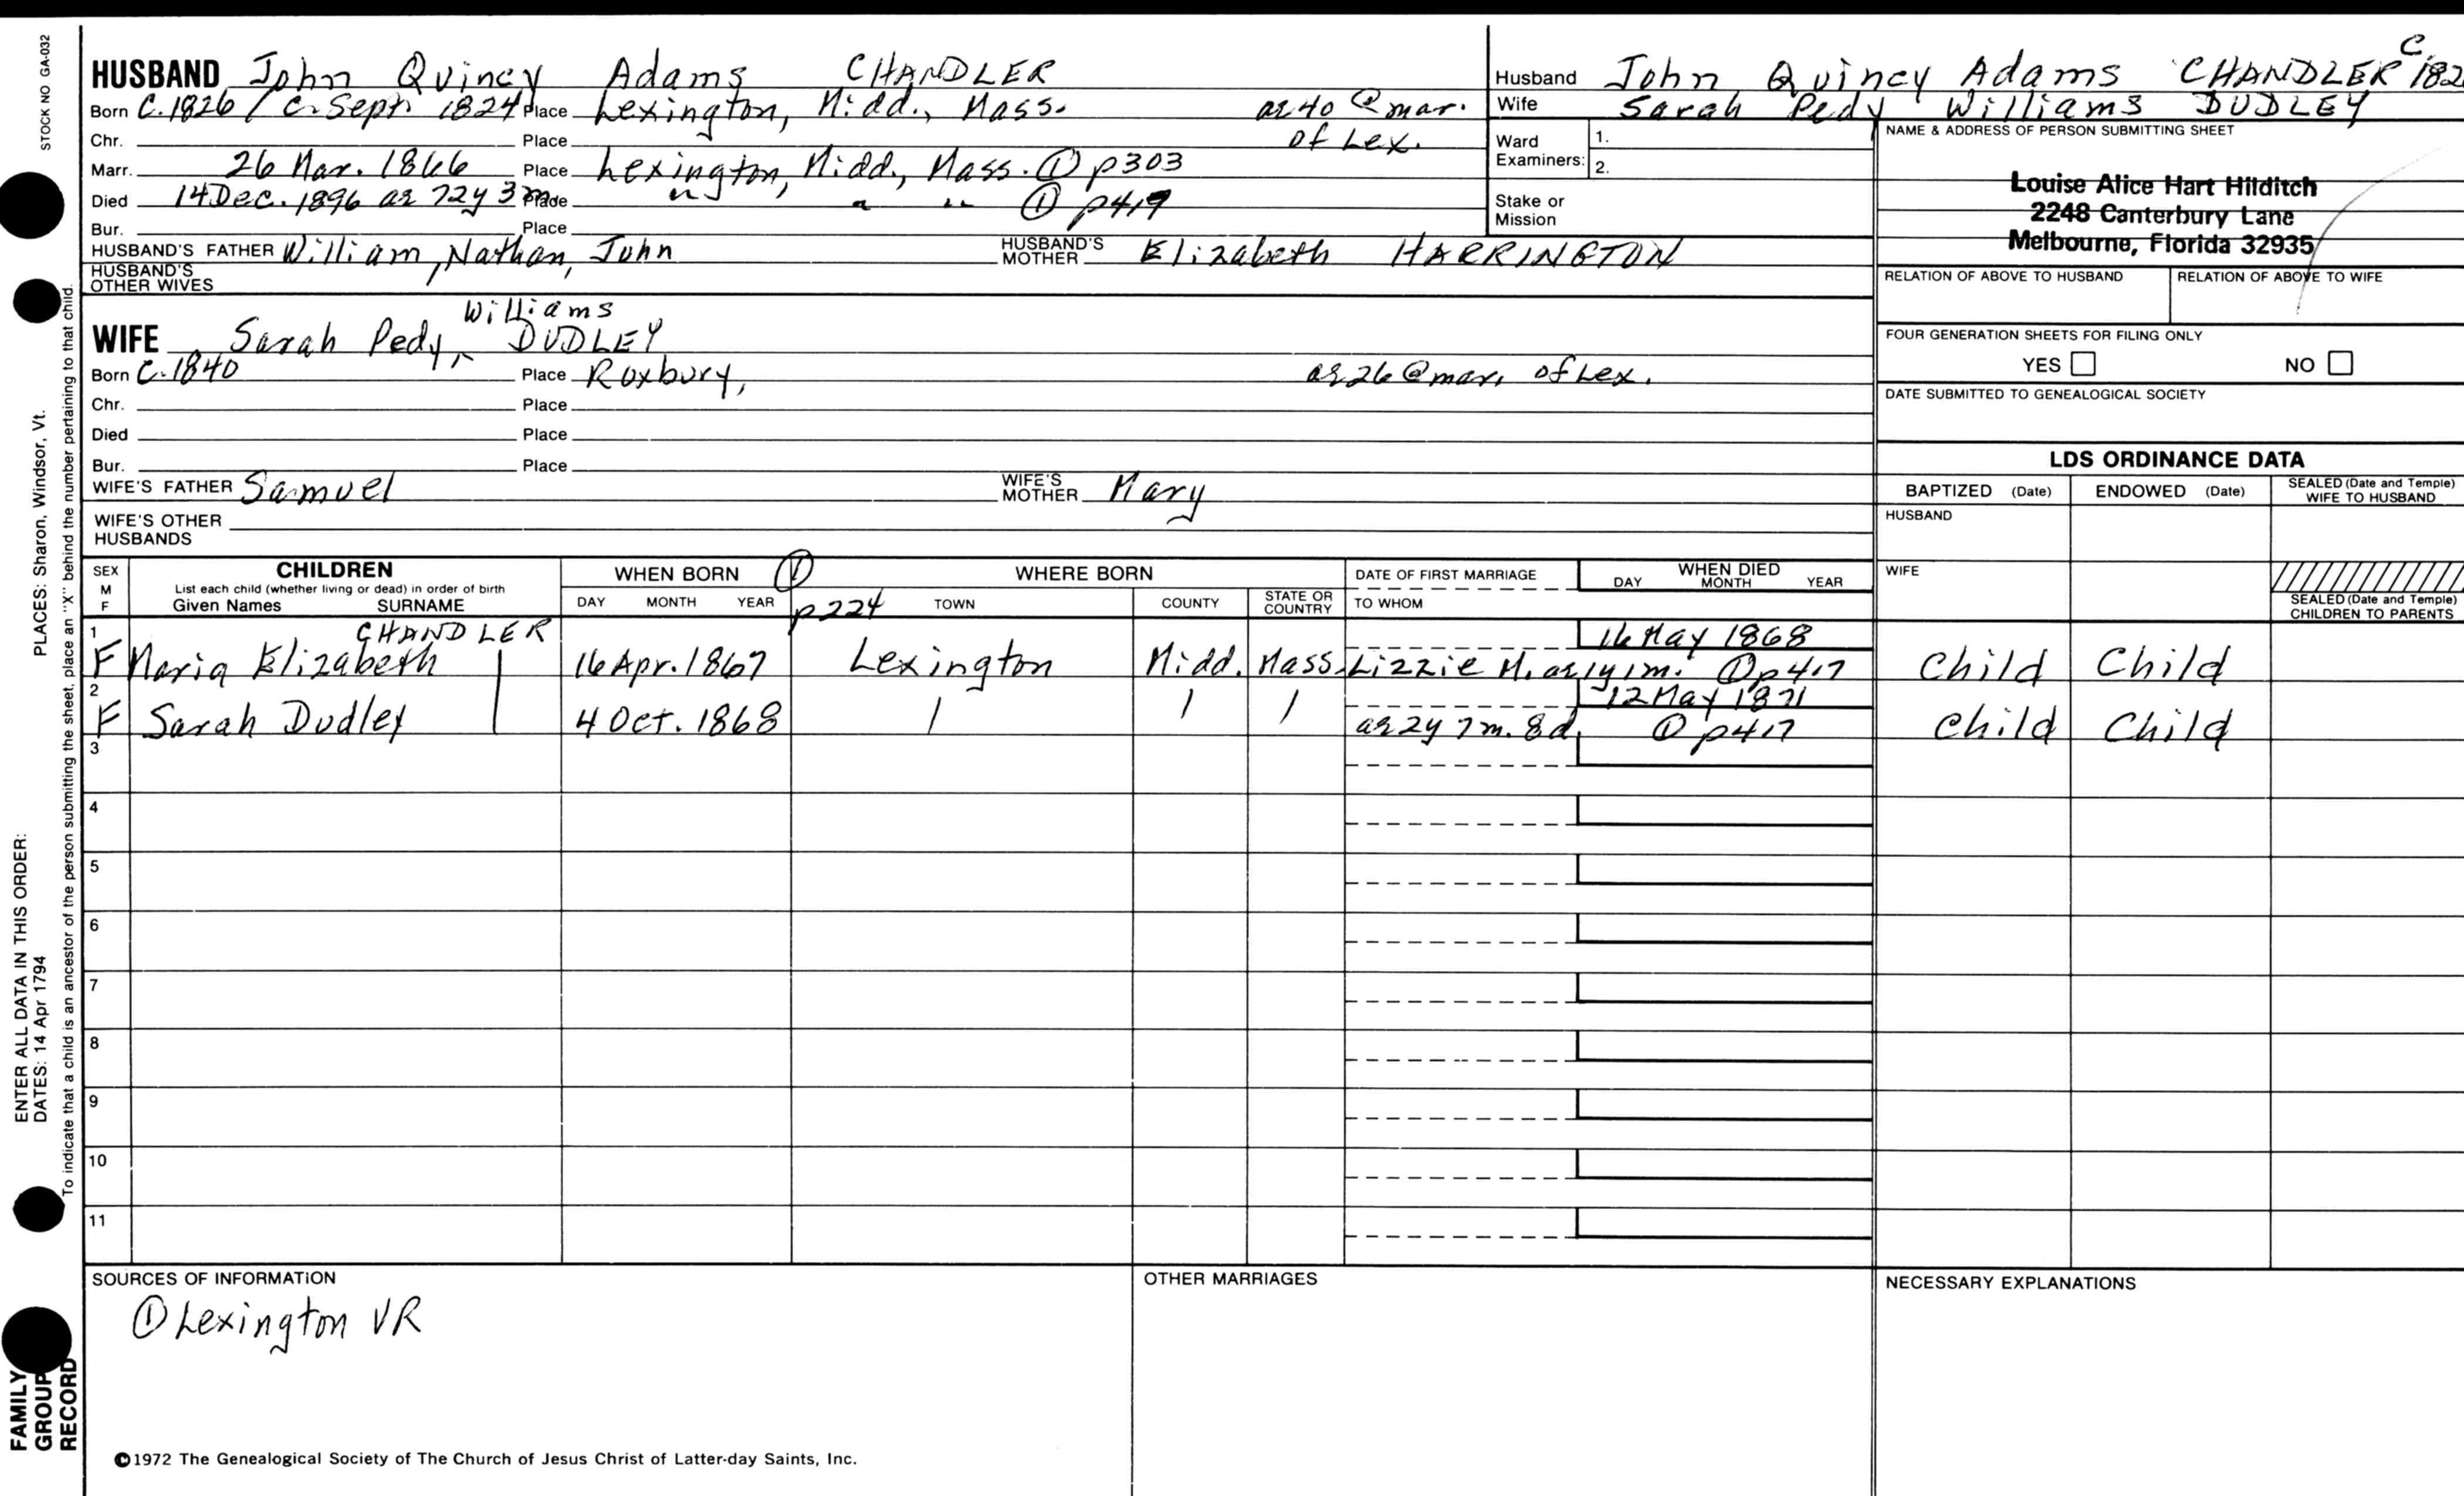 STOCK NO GA-032
PLACES: Sharon, Windsor, Vt.
ENTER ALL DATA IN THIS ORDER:
DATES: 14 Apr 1794
To indicate that a child is an ancestor of the person submitting the sheet, place an "X" behind the number pertaining to that child.
FAMILY
GROUP
RECORD
HUSBAND John Quincy Adams CHANDLER
Born C. 1826 / C. Sept. 1824 Place Lexington, Midd., Mass. ae 40 @ mar.
Chr. Place of Lex.
Marr. 26 Mar. 1866 Place Lexington, Midd., Mass. ① p303
Died 14 Dec. 1896 ae 72y 3m Place " " " ① p419
Bur. Place
HUSBAND'S FATHER William, Nathan, John HUSBAND'S MOTHER Elizabeth HARRINGTON
HUSBAND'S
OTHER WIVES
Husband John Quincy Adams CHANDLER C 182
Wife Sarah Pedy Williams DUDLEY
Ward
Examiners:
1.
2.
Stake or
Mission
NAME & ADDRESS OF PERSON SUBMITTING SHEET
Louise Alice Hart Hilditch
2248 Canterbury Lane
Melbourne, Florida 32935
RELATION OF ABOVE TO HUSBAND RELATION OF ABOVE TO WIFE
FOUR GENERATION SHEETS FOR FILING ONLY
YES NO
DATE SUBMITTED TO GENEALOGICAL SOCIETY
Williams
WIFE Sarah Pedy, ^ DUDLEY
Born C. 1840 Place Roxbury, ae 26 @ mar. of Lex.
Chr. Place
Died Place
Bur. Place
WIFE'S FATHER Samuel WIFE'S MOTHER Mary
WIFE'S OTHER
HUSBANDS
LDS ORDINANCE DATA
BAPTIZED (Date) ENDOWED (Date) SEALED (Date and Temple) WIFE TO HUSBAND
HUSBAND
WIFE
SEALED (Date and Temple)
CHILDREN TO PARENTS
SEX
M
F
CHILDREN
List each child (whether living or dead) in order of birth
Given Names SURNAME
WHEN BORN ①
DAY MONTH YEAR p224
WHERE BORN
TOWN COUNTY STATE OR COUNTRY
DATE OF FIRST MARRIAGE
TO WHOM
WHEN DIED
DAY MONTH YEAR
CHANDLER 16 May 1868
1 F Maria Elizabeth | 16 Apr. 1867 Lexington Midd. Mass. Lizzie M. ae 1y 1m. ① p417 Child Child
12 May 1871
2 F Sarah Dudley | 4 Oct. 1868 / / / ae 2y 7m. 8d. ① p417 Child Child
3
4
5
6
7
8
9
10
11
SOURCES OF INFORMATION
① Lexington VR
OTHER MARRIAGES
NECESSARY EXPLANATIONS
©1972 The Genealogical Society of The Church of Jesus Christ of Latter-day Saints, Inc.